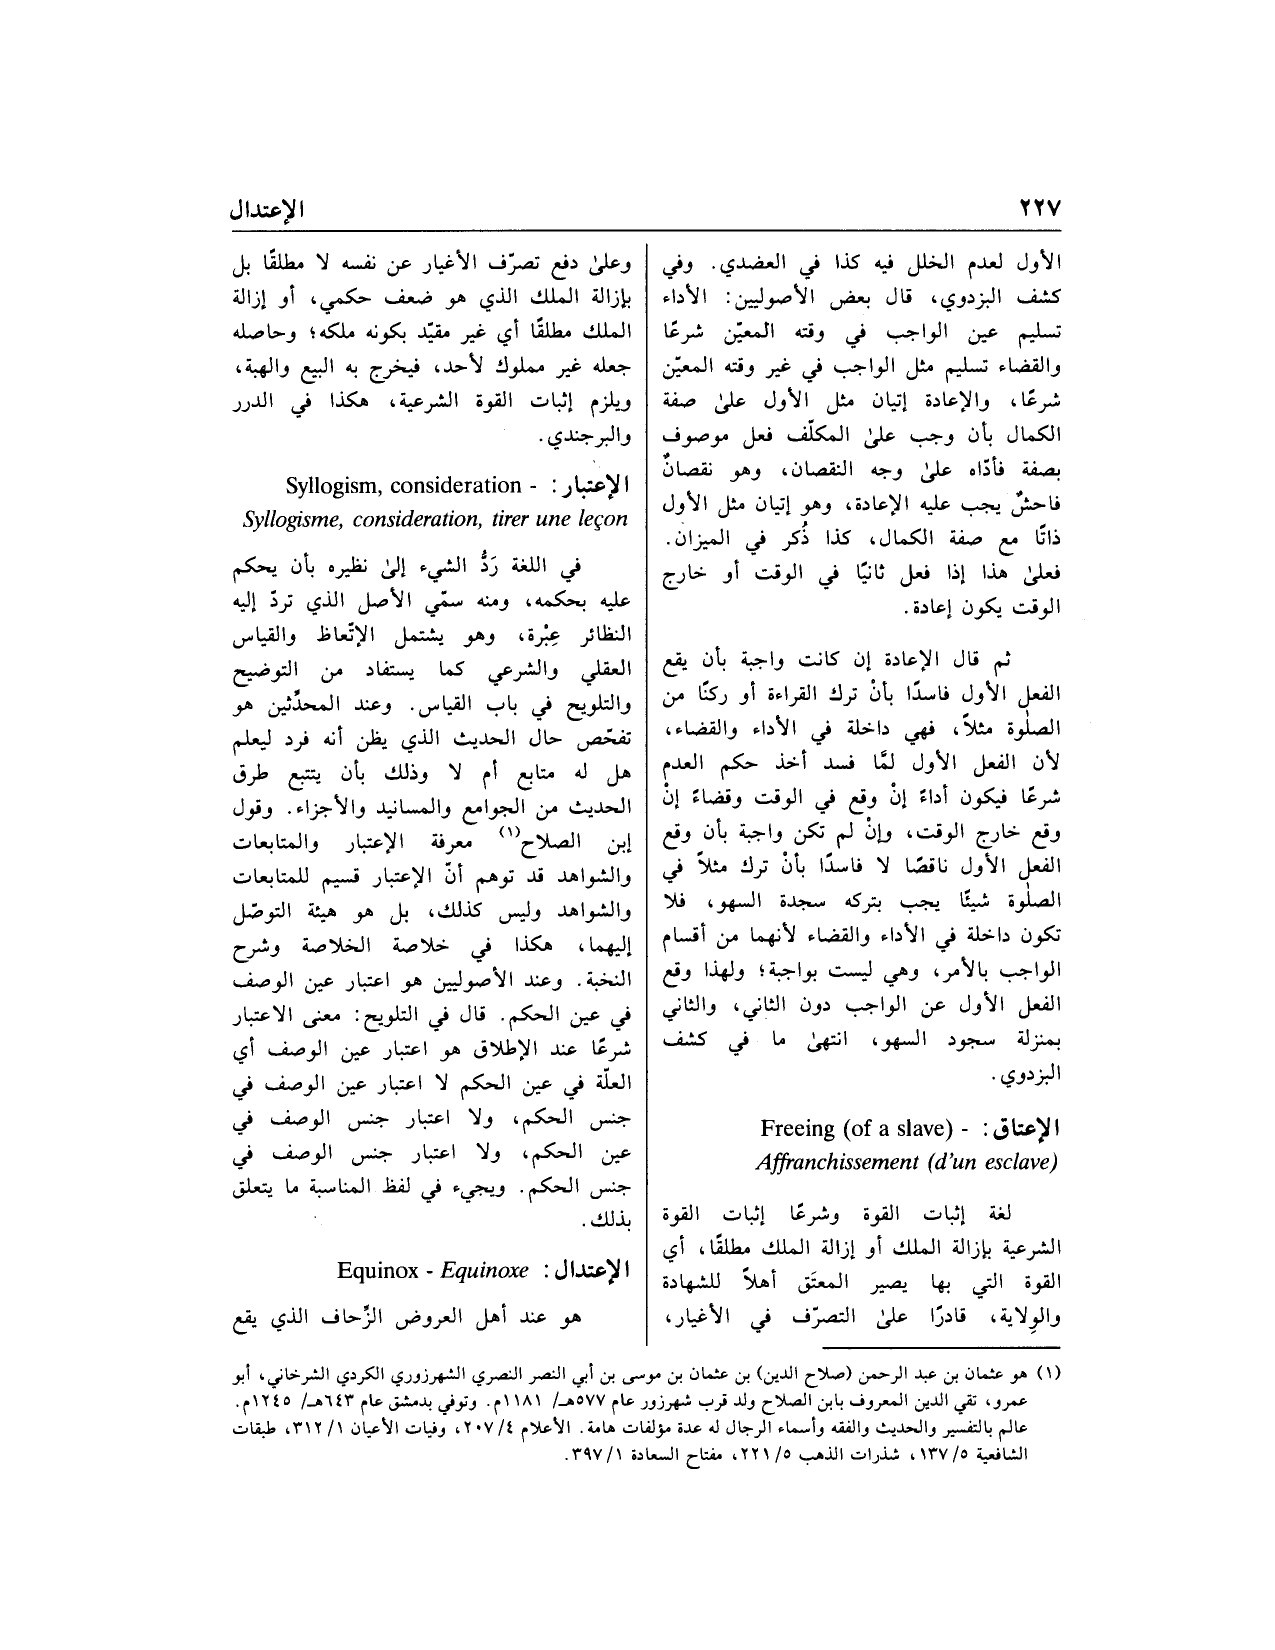 ٢٢٧
الإعتدال
الأول لعدم الخلل فيه كذا في العضدي. وفي
كشف البزدوي، قال بعض الأصوليين: الأداء
تسليم عين الواجب في وقته المعيّن شرعًا
والقضاء تسليم مثل الواجب في غير وقته المعيّن
شرعًا، والإعادة إتيان مثل الأول علىٰ صفة
الكمال بأن وجب علىٰ المكلّف فعل موصوف
بصفة فأدّاه علىٰ وجه النقصان، وهو نقصانٌ
فاحشٌ يجب عليه الإعادة، وهو إتيان مثل الأول
ذاتًا مع صفة الكمال، كذا ذُكر في الميزان.
فعلىٰ هذا إذا فعل ثانيًا في الوقت أو خارج
الوقت يكون إعادة.
ثم قال الإعادة إن كانت واجبة بأن يقع
الفعل الأول فاسدًا بأنْ ترك القراءة أو ركنًا من
الصلٰوة مثلاً، فهي داخلة في الأداء والقضاء،
لأن الفعل الأول لمَّا فسد أخذ حكم العدم
شرعًا فيكون أداءً إنْ وقع في الوقت وقضاءً إنْ
وقع خارج الوقت، وإنْ لم تكن واجبة بأن وقع
الفعل الأول ناقصًا لا فاسدًا بأنْ ترك مثلاً في
الصلٰوة شيئًا يجب بتركه سجدة السهو، فلا
تكون داخلة في الأداء والقضاء لأنهما من أقسام
الواجب بالأمر، وهي ليست بواجبة؛ ولهذا وقع
الفعل الأول عن الواجب دون الثاني، والثاني
بمنزلة سجود السهو، انتهىٰ ما في كشف
البزدوي.
الإعتاق: - Freeing (of a slave)
Affranchissement (d’un esclave)
لغة إثبات القوة وشرعًا إثبات القوة
الشرعية بإزالة الملك أو إزالة الملك مطلقًا، أي
القوة التي بها يصير المعتَق أهلاً للشهادة
والوِلاية، قادرًا علىٰ التصرّف في الأغيار،
وعلىٰ دفع تصرّف الأغيار عن نفسه لا مطلقًا بل
بإزالة الملك الذي هو ضعف حكمي، أو إزالة
الملك مطلقًا أي غير مقيّد بكونه ملكه؛ وحاصله
جعله غير مملوك لأحد، فيخرج به البيع والهبة،
ويلزم إثبات القوة الشرعية، هكذا في الدرر
والبرجندي.
الإعتبار: - Syllogism, consideration
Syllogisme, consideration, tirer une leçon
في اللغة رَدُّ الشيء إلىٰ نظيره بأن يحكم
عليه بحكمه، ومنه سمّي الأصل الذي تردّ إليه
النظائر عِبْرة، وهو يشتمل الإتّعاظ والقياس
العقلي والشرعي كما يستفاد من التوضيح
والتلويح في باب القياس. وعند المحدِّثين هو
تفحّص حال الحديث الذي يظن أنه فرد ليعلم
هل له متابع أم لا وذلك بأن يتتبع طرق
الحديث من الجوامع والمسانيد والأجزاء. وقول
إبن الصلاح(١) معرفة الإعتبار والمتابعات
والشواهد قد توهم أنّ الإعتبار قسيم للمتابعات
والشواهد وليس كذلك، بل هو هيئة التوصّل
إليهما، هكذا في خلاصة الخلاصة وشرح
النخبة. وعند الأصوليين هو اعتبار عين الوصف
في عين الحكم. قال في التلويح: معنى الاعتبار
شرعًا عند الإطلاق هو اعتبار عين الوصف أي
العلّة في عين الحكم لا اعتبار عين الوصف في
جنس الحكم، ولا اعتبار جنس الوصف في
عين الحكم، ولا اعتبار جنس الوصف في
جنس الحكم. ويجيء في لفظ المناسبة ما يتعلق
بذلك.
الإعتدال: Equinox - Equinoxe
هو عند أهل العروض الزِّحاف الذي يقع
(١) هو عثمان بن عبد الرحمن (صلاح الدين) بن عثمان بن موسى بن أبي النصر النصري الشهرزوري الكردي الشرخاني، أبو
عمرو، تقي الدين المعروف بابن الصلاح ولد قرب شهرزور عام ٥٧٧هـ/ ١١٨١م. وتوفي بدمشق عام ٦٤٣هـ/ ١٢٤٥م.
عالم بالتفسير والحديث والفقه وأسماء الرجال له عدة مؤلفات هامة. الأعلام ٢٠٧/٤، وفيات الأعيان ٣١٢/١، طبقات
الشافعية ١٣٧/٥، شذرات الذهب ٢٢١/٥، مفتاح السعادة ٣٩٧/١.